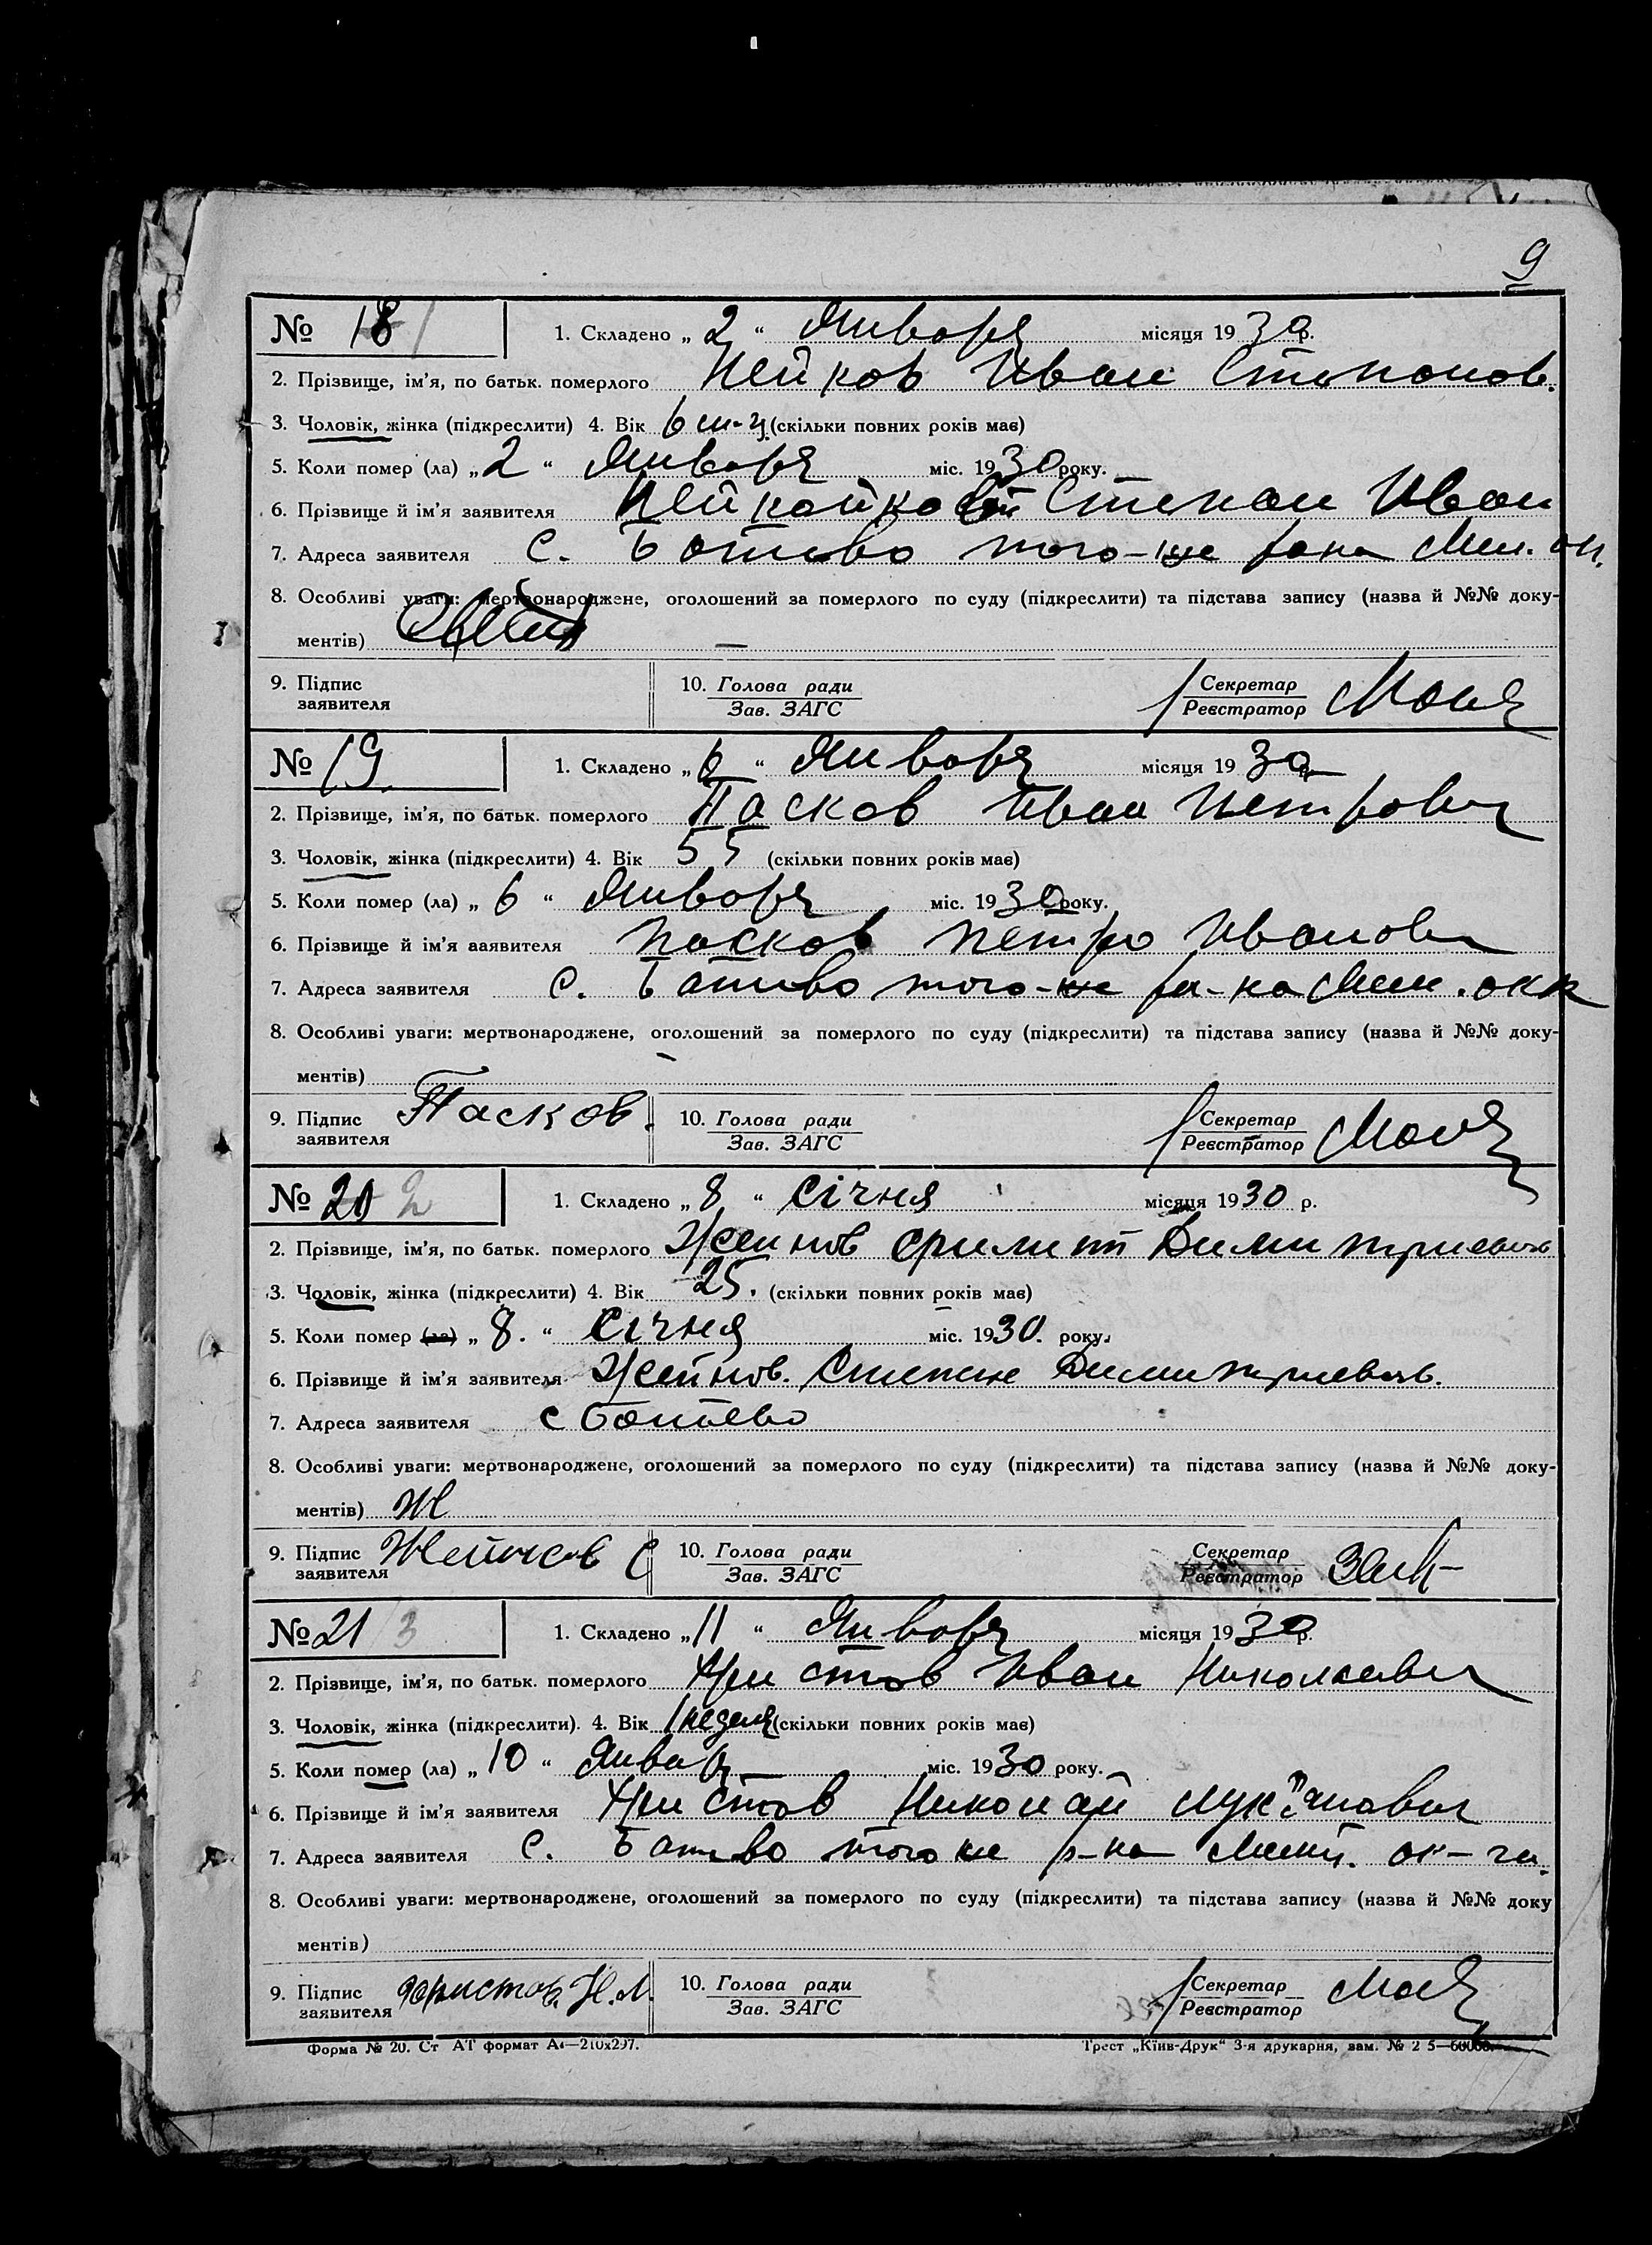 9
№ 18 1
1. Складено „2“ Января місяця 1930 р.
2. Прізвище, ім’я, по батьк. померлого Пейков Иван Степанов.
3. Чоловік, жінка (підкреслити) 4. Вік 6 (скільки повних років має)
5. Коли помер (ла) „2“ Января міс. 1930 року.
6. Прізвище й ім’я заявителя Степан Иван
7. Адреса заявителя с. Ботево того-же Мел. ок.
8. Особливі уваги: мертвонароджене, оголошений за померлого по суду (підкреслити) та підстава запису (назва й №№ доку-
ментів) —
9. Підпис заявителя
10. Голова ради Зав. ЗАГС
Секретар Реєстратор
№ 19.
1. Складено „6“ Января місяця 1930 р.
2. Прізвище, ім’я, по батьк. померлого Пасков Иван Петрович
3. Чоловік, жінка (підкреслити) 4. Вік 55 (скільки повних років має)
5. Коли помер (ла) „6“ Января міс. 1930 року.
6. Прізвище й ім’я заявителя Пасков Петро Иванович
7. Адреса заявителя с. Ботево того-же ра-на Мел. окр
8. Особливі уваги: мертвонароджене, оголошений за померлого по суду (підкреслити) та підстава запису (назва й №№ доку-
ментів)
9. Підпис заявителя Пасков.
10. Голова ради Зав. ЗАГС
Секретар Реєстратор
№ 20 2
1. Складено „8“ Січня місяця 1930 р.
2. Прізвище, ім’я, по батьк. померлого Жейнов Димитриевич
3. Чоловік, жінка (підкреслити) 4. Вік 25. (скільки повних років має)
5. Коли помер (ла) „8.“ Січня міс. 1930. року.
6. Прізвище й ім’я заявителя Жейнов. Степан Димитриевич.
7. Адреса заявителя с Ботево
8. Особливі уваги: мертвонароджене, оголошений за померлого по суду (підкреслити) та підстава запису (назва й №№ доку-
ментів) Ж
9. Підпис заявителя Жейнов С
10. Голова ради Зав. ЗАГС
Секретар Реєстратор
№ 21 3
1. Складено „11“ Января місяця 1930 р.
2. Прізвище, ім’я, по батьк. померлого Христов Иван Николаевич
3. Чоловік, жінка (підкреслити). 4. Вік 1 неделя (скільки повних років має)
5. Коли помер (ла) „10“ Января міс. 1930 року.
6. Прізвище й ім’я заявителя Христов Николай Лукьянович
7. Адреса заявителя с. Ботево того же р-на Мелит. ок-га.
8. Особливі уваги: мертвонароджене, оголошений за померлого по суду (підкреслити) та підстава запису (назва й №№ доку
ментів)
9. Підпис заявителя Христов. Н. Л.
10. Голова ради Зав. ЗАГС
Секретар Реєстратор
Форма № 20. Ст АТ формат А4—210х297.
Трест „Київ-Друк“ 3-я друкарня, зам. № 2 5—60000.